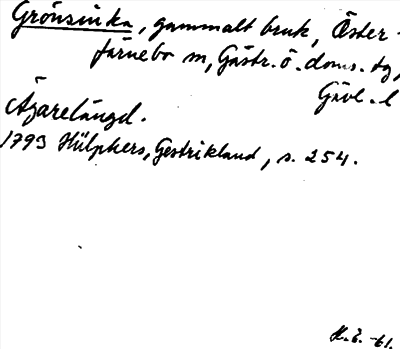 Grönsinka, gammalt bruk, Öster-
färnebo sn, Gästr. ö. doms. tg,
Gävl. l
Ägarelängd.
1793 Hülphers, Gestrikland, s. 254.
H. E. -61.